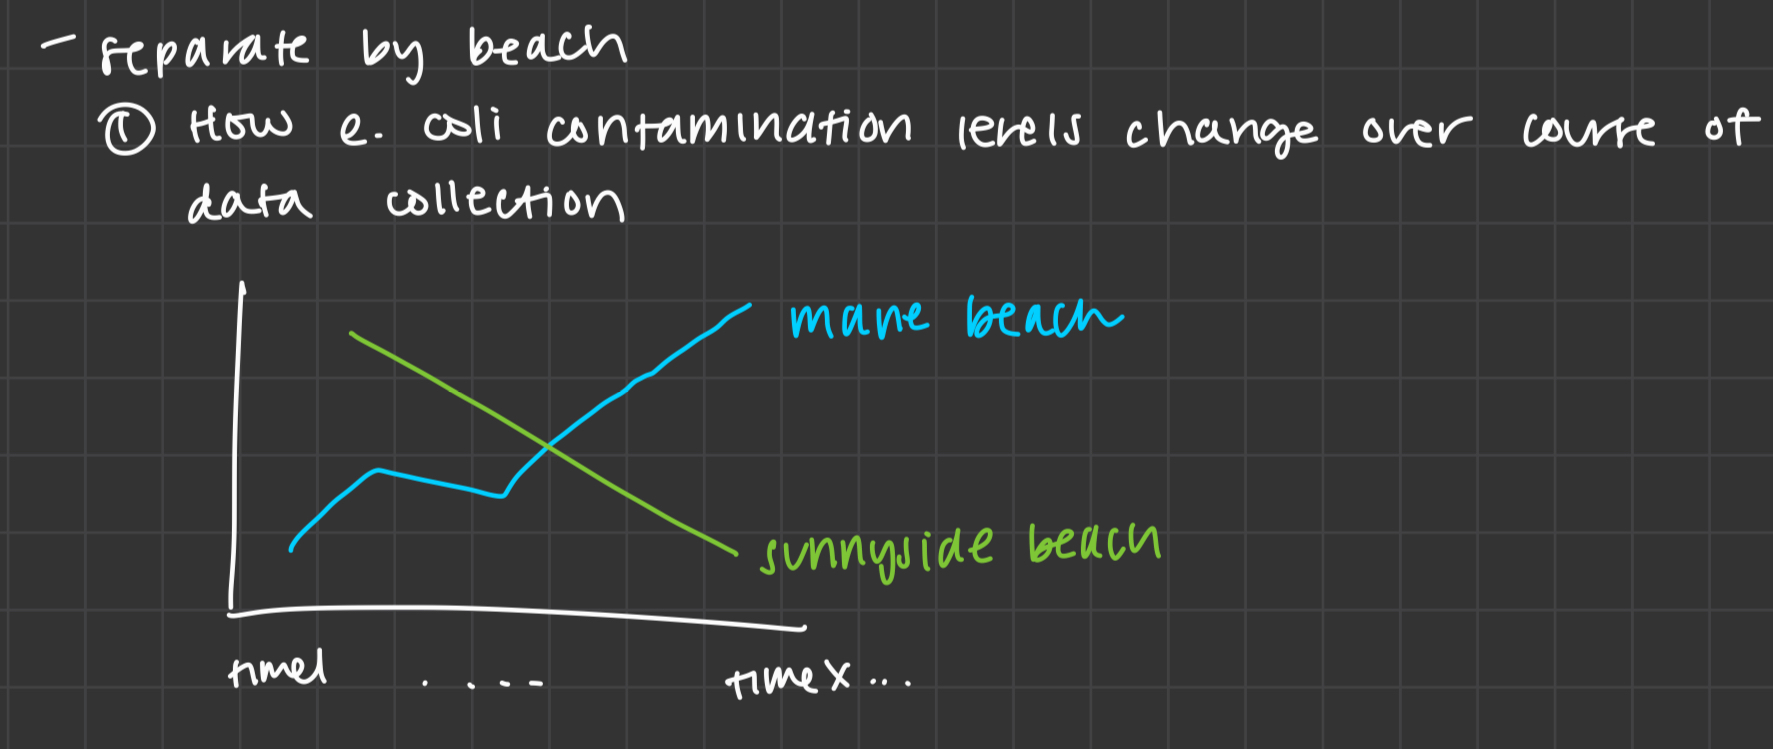 - separate by beach
① How e. coli contamination levels change over course of
data collection
mane beach
sunnyside beach
time1 . . - - timeX...